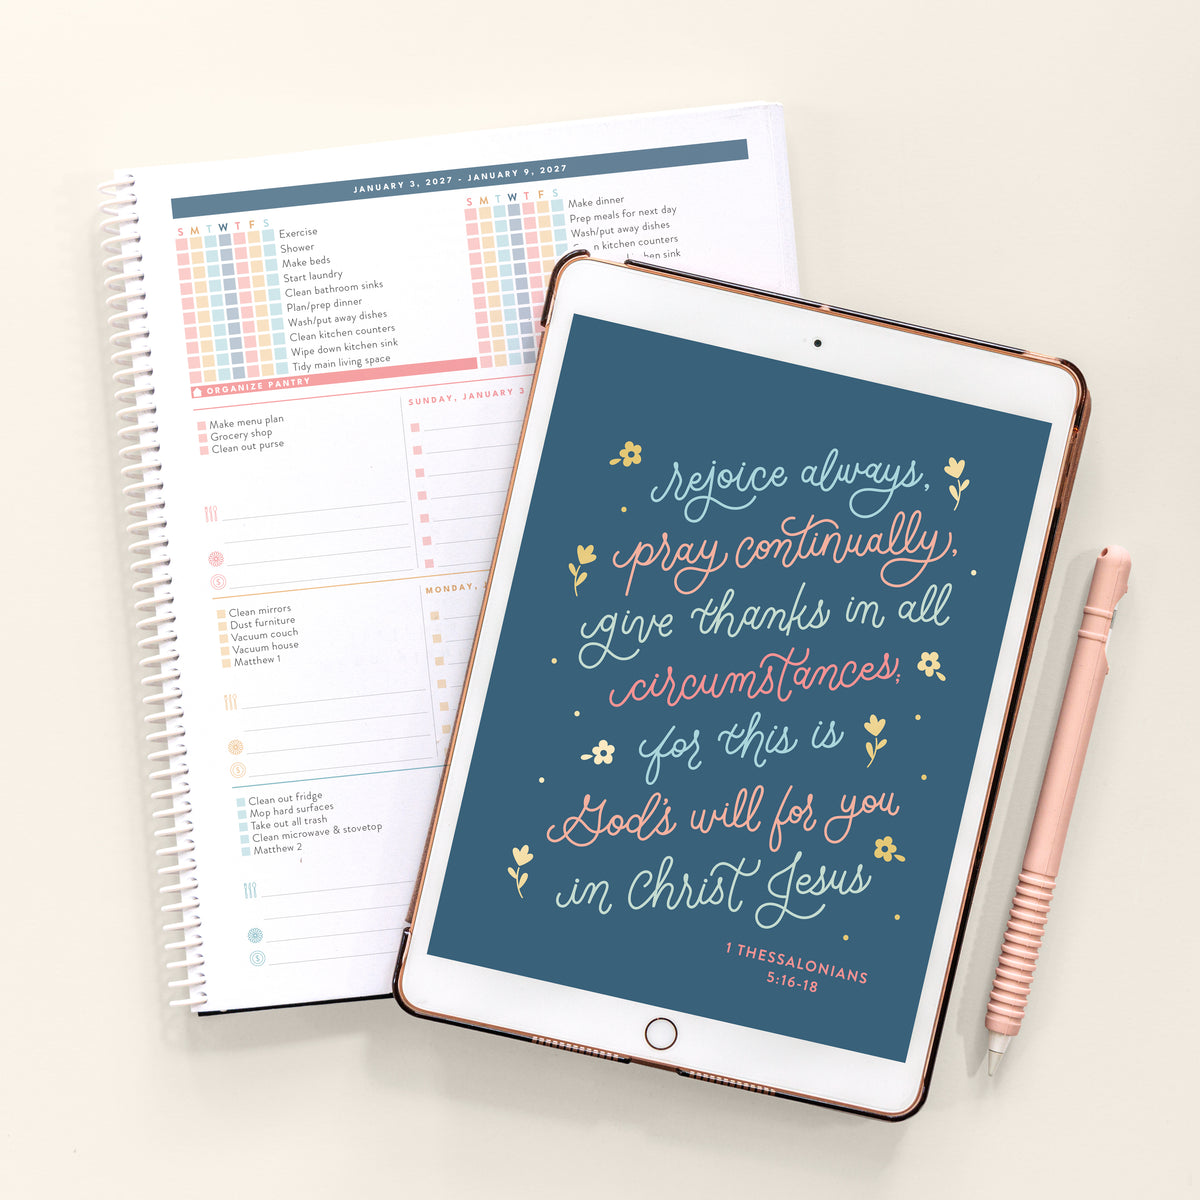 JANUARY 3, 2027 - JANUARY 9, 2027
S M T W T F S
Exercise
Shower
Make beds
Start laundry
Clean bathroom sinks
Plan/prep dinner
Wash/put away dishes
Clean kitchen counters
Wipe down kitchen sink
Tidy main living space
S M T W T F S
Make dinner
Prep meals for next day
Wash/put away dishes
kitchen counters
sink
ORGANIZE PANTRY
SUNDAY, JANUARY 3
Make menu plan
Grocery shop
Clean out purse
MONDAY,
Clean mirrors
Dust furniture
Vacuum couch
Vacuum house
Matthew 1
Clean out fridge
Mop hard surfaces
Take out all trash
Clean microwave & stovetop
Matthew 2
rejoice always,
pray continually,
give thanks in all
circumstances;
for this is
God's will for you
in Christ Jesus
1 THESSALONIANS
5:16-18